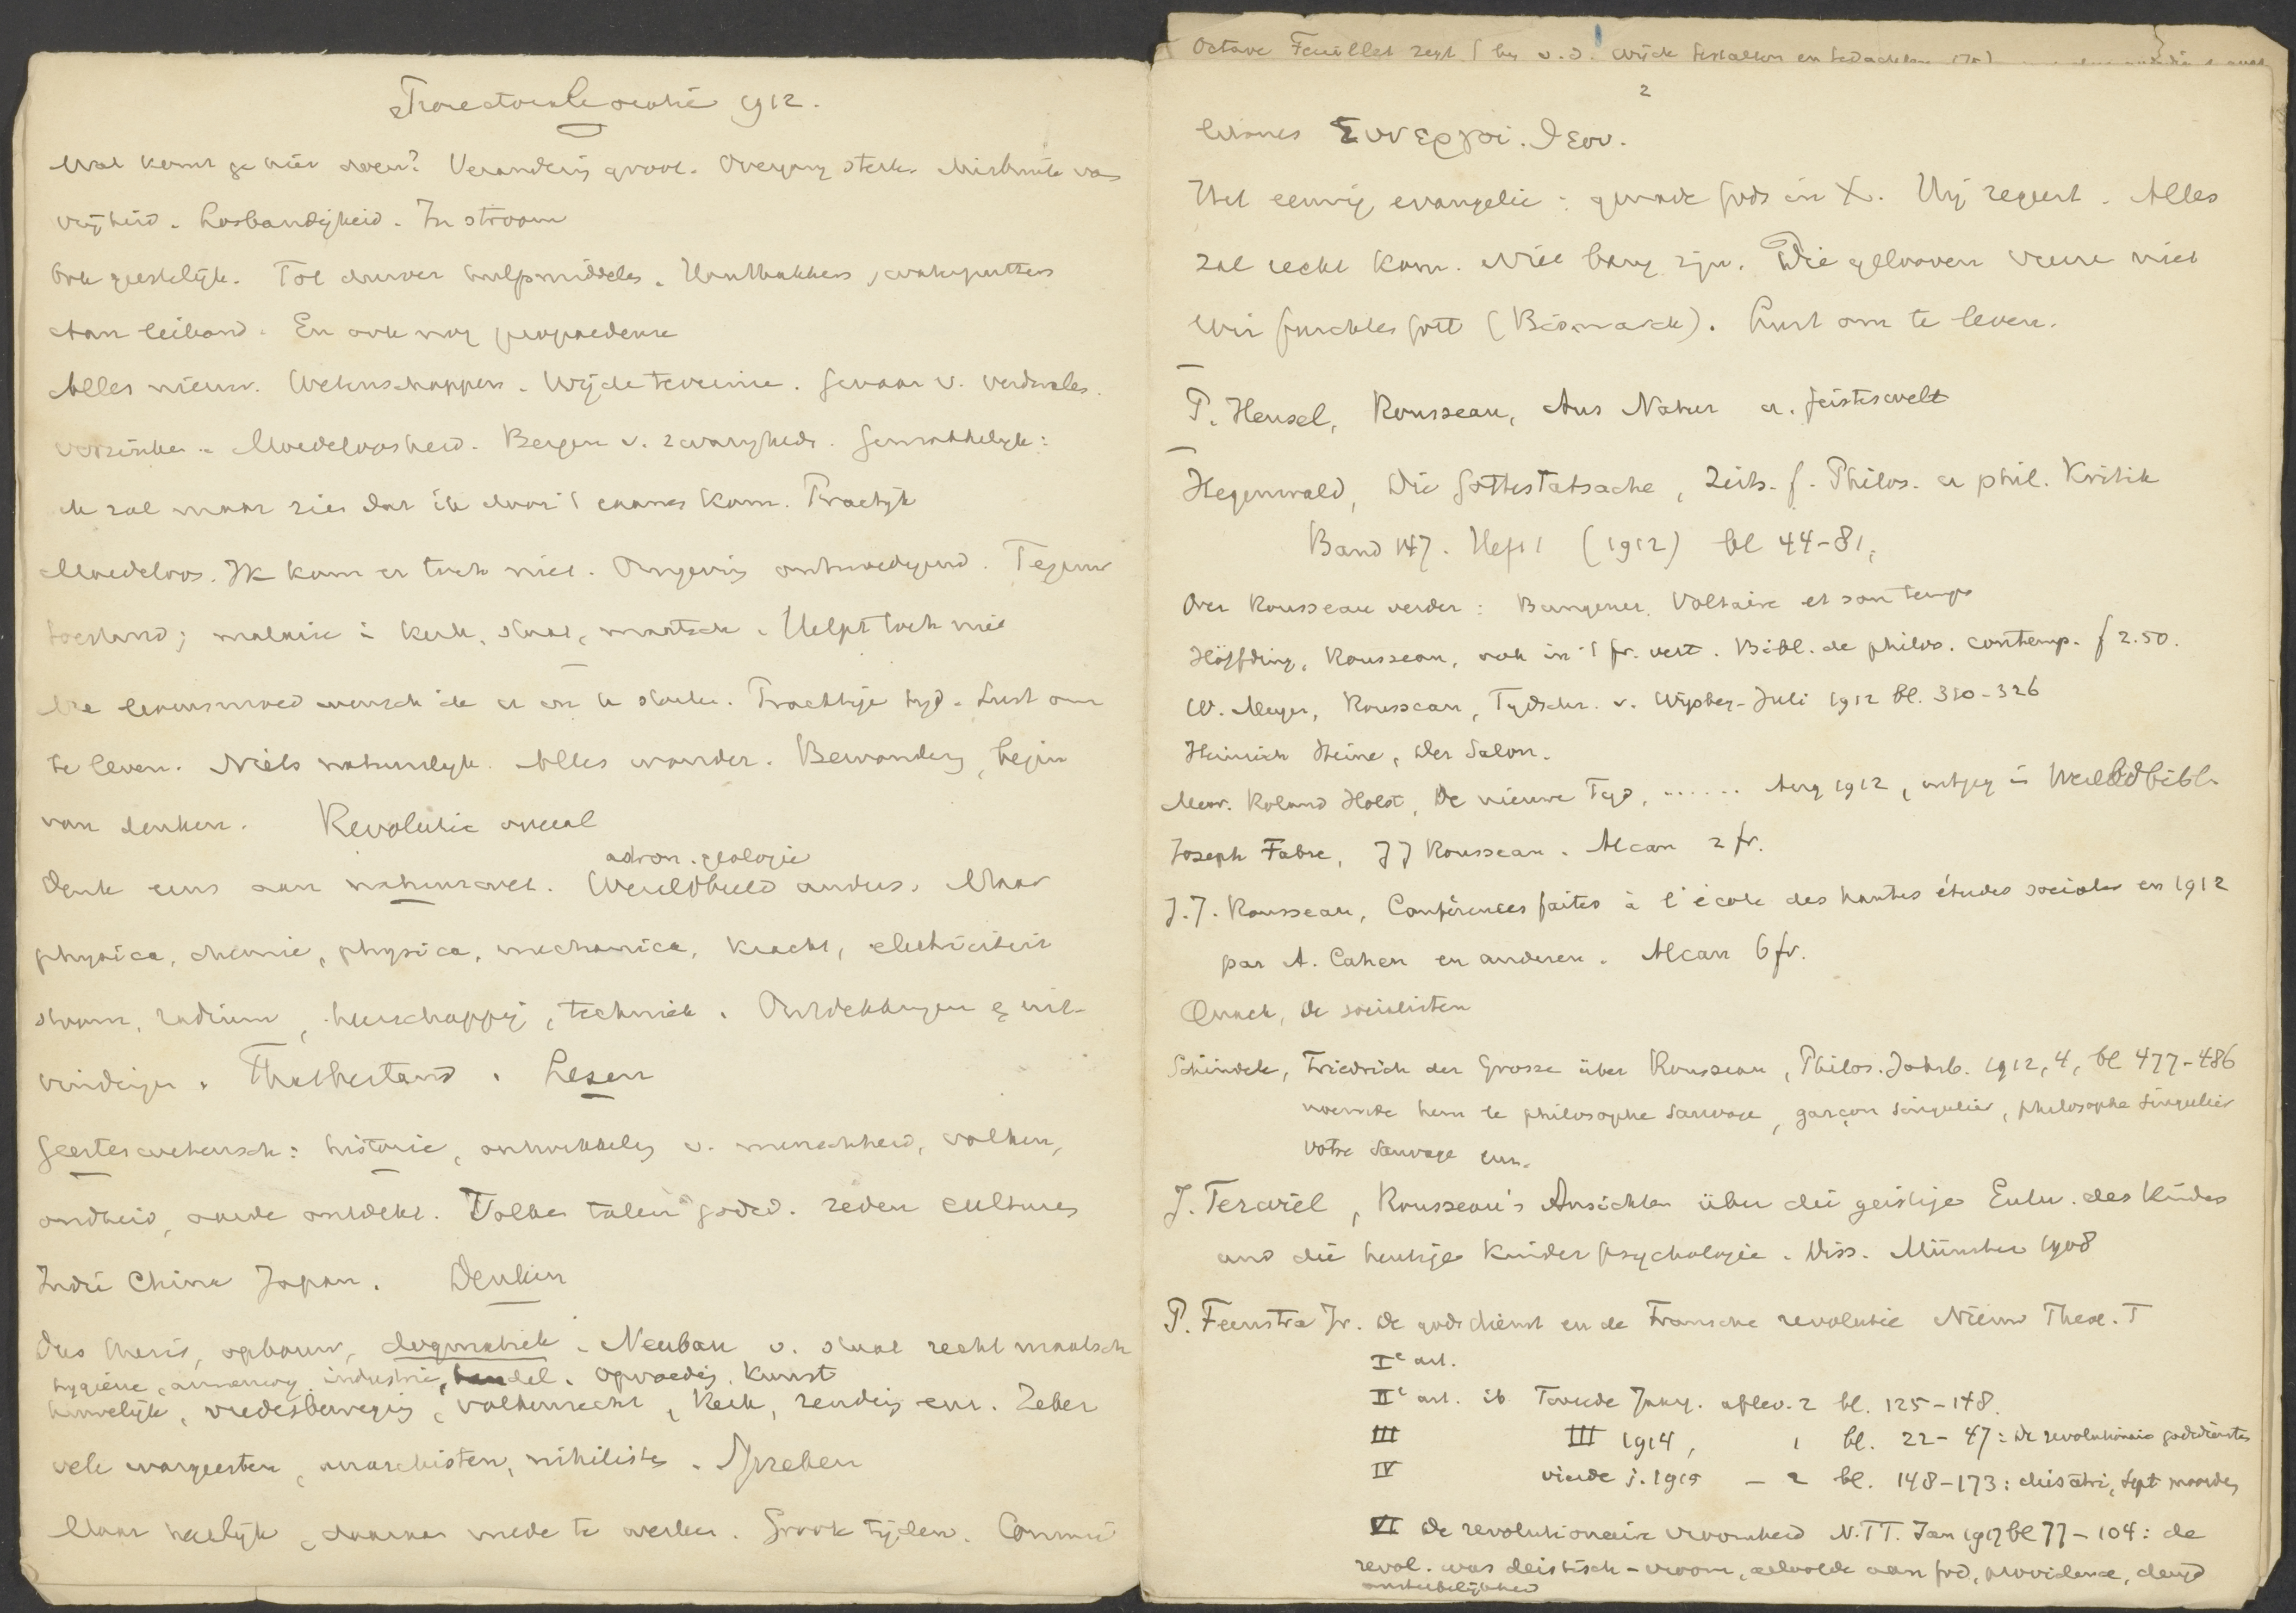 oratie 1912.
Wat komt ge hier doen? Verandering groot. Overgang sterk. Misbruik van
vrijheid. Losbandigheid. In stroom
Ook geestelijk. Tot dusver hulpmiddelen.
Aan leiband. En ook nog propaedeuse
Alles nieuw. Wetenschappen. Wijde terreinen. Gevaar v. verdwalen.
verzinken. Moedeloosheid. Bergen v. zwarigheden. Gemakkelijk:
ik zal maar zien dat ik door 't examen kom. Practijk
Moedeloos. Ik kom er toch niet. Omgeving ontmoedigend. Tegenw
toestand; malaise in kerk, staat, maatsch. Helpt toch niet
levensmoed wensch ik er in te storten. Prachtige tijd. Lust om
te leven. Niets natuurlijk. Alles wonder. Bewondering, begin
van denken. Revolutie overal
astron. geologie
Denk eens aan natuurwet. Wereldbeeld anders. Maar
physica, chemie, physica, mechanica, kracht, electriciteit
stoom, radium, heerschappij, techniek. Ontdekkingen & uit-
vindingen. Thatbestand. Lezen
Geesteswetensch: historie, ontwikkeling v. menschheid, volken,
oudheid, aarde ontdekt. Volken talen godsd. zeden cultures
Indië China Japan. Denken
Dus thesis, opbouw, dogmatiek. Neubau v. staat recht maatsch
hygiëne, armenzorg, industrie, handel. Opvoeding. Kunst
huwelijk, vredesbeweging, volkenrecht, kerk, zending enz. Zeker
vele warrgeesten, anarchisten, nihilisten. Spreken
Maar heerlijk, daaraan mede te werken. Groote tijden. Commu
Octave Feuillet zegt (bij v.d. Wijck Gestalten en Gedachten
2
Συνεργοι. Θεου.
Het eeuwig evangelie: genade Gods in X. Hij regeert. Alles
zal recht kom. Niet bang zijn. Die gelooven vreezen niet
Wir fürchten Gott (Bismarck). Lust om te leven.
P. Hensel, Rousseau, Aus Natur u. Geisteswelt
Hegenwald, Die Gottestatsache, Zeits. f. Philos. u phil. Kritik
Band 147. Heft 1 (1912) bl 44-81.
Over Rousseau verder: Bungener, Voltaire et son temps
Höffding, Rousseau, ook in 't fr. vert. Bibl. de philos. contemp. f 2.50.
W. Meyer, Rousseau, Tijdschr. v. Wijsbeg. Juli 1912 bl. 310-326
Heinrich Heine, Der Salon.
Mevr. Roland Holst, De nieuwe Tijd, ...... Aug 1912, uitgeg in Wereldbibl.
Joseph Fabre, J J Rousseau. Alcan 2 fr.
J. J. Rousseau, Conférences faites à l'école des hautes études sociales en 1912
par A. Cahen en anderen. Alcan 6 fr.
Quack, de socialisten
Schindele, Friedrich der Grosse über Rousseau, Philos. Jahrb. 1912, 4, bl 477-486
noemde hem le philosophe sauvage, garçon singulier, philosophe singulier
votre sauvage enz.
J. Terwiel, Rousseau's Ansichten über die geistige Entw. des Kindes
und die heutige Kinderpsychologie. Diss. Münster 1908
P. Feenstra Jr. De godsdienst en de Fransche revolutie Nieuw Theol. T
Iᵉ art.
IIᵉ art. ib Tweede Jaarg. aflev. 2 bl. 125-148.
III III 1914, 1 bl. 22-47: De revolutionaire godsdiensten
IV vierde j. 1915 - 2 bl. 148-173: Sept moorden
VI De revolutionaire vroomheid N.TT. Jan 1917 bl 77-104: de
revol. was deistisch-vroom, geloofde aan God, providence, deugd
onsterfelijkheid